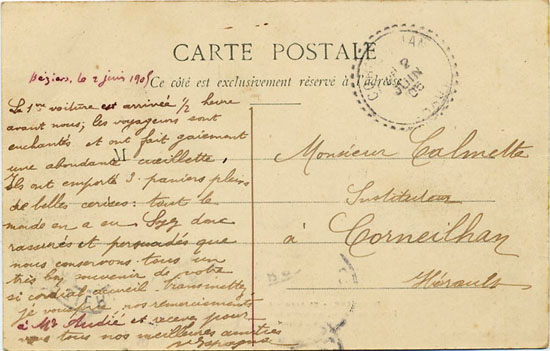 CARTE POSTALE
Ce côté est exclusivement réservé à l'adresse
Béziers, le 2 juin 1905
La 1ère voiture est arrivée 1/2 heure
avant nous; les voyageurs sont
enchantés et ont fait gaiement
une abondante cueillette,
Ils ont emporté 3 paniers pleins
de belles cerises: tout le
monde en a eu Soyez donc
rassurés et persuadés que
nous conservons tous un
très bon souvenir de votre
si cordial accueil transmettez
je vous prie nos remerciements
à Mr Audié et recevez pour
vous tous nos meilleures amitiés
M
Monsieur Calmette
Instituteur
à Corneilhan
Hérault
2
JUIN
05